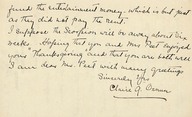 fund the entertainment money. which is but just
as they did not pay the rent.
I suppose the Scorpion will be away about six
weeks. Hoping that you and Mrs. Peat enjoyed
yours Thanksgiving and that you are both well
I am dear Mr. Peat with many greetings
Sincerely Yrs